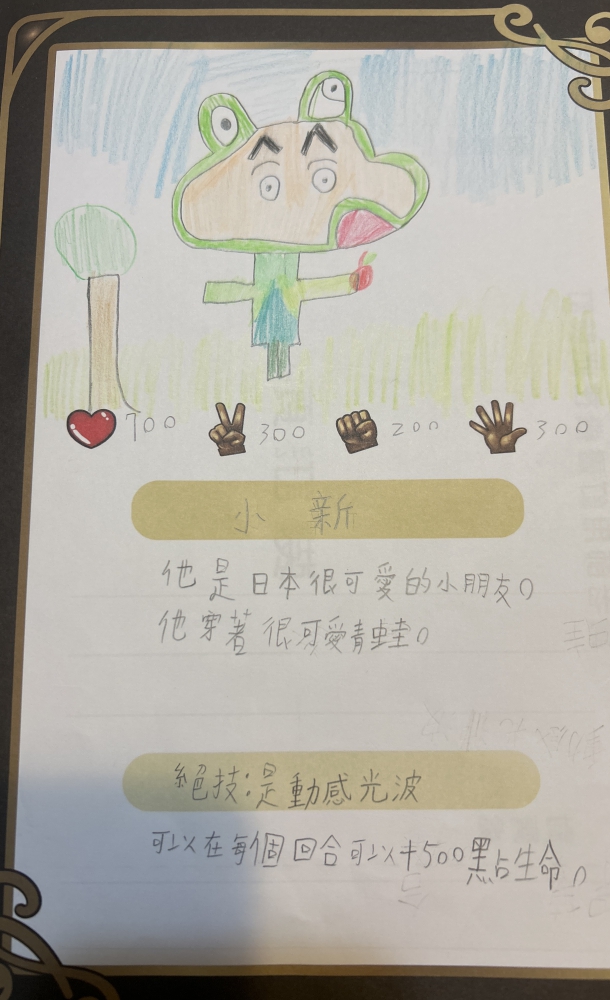 700 300 200 300
小 新
他是日本很可愛的小朋友。
他穿著很可愛青蛙。
絕技:是動感光波
可以在每個回合可以扌500點生命。